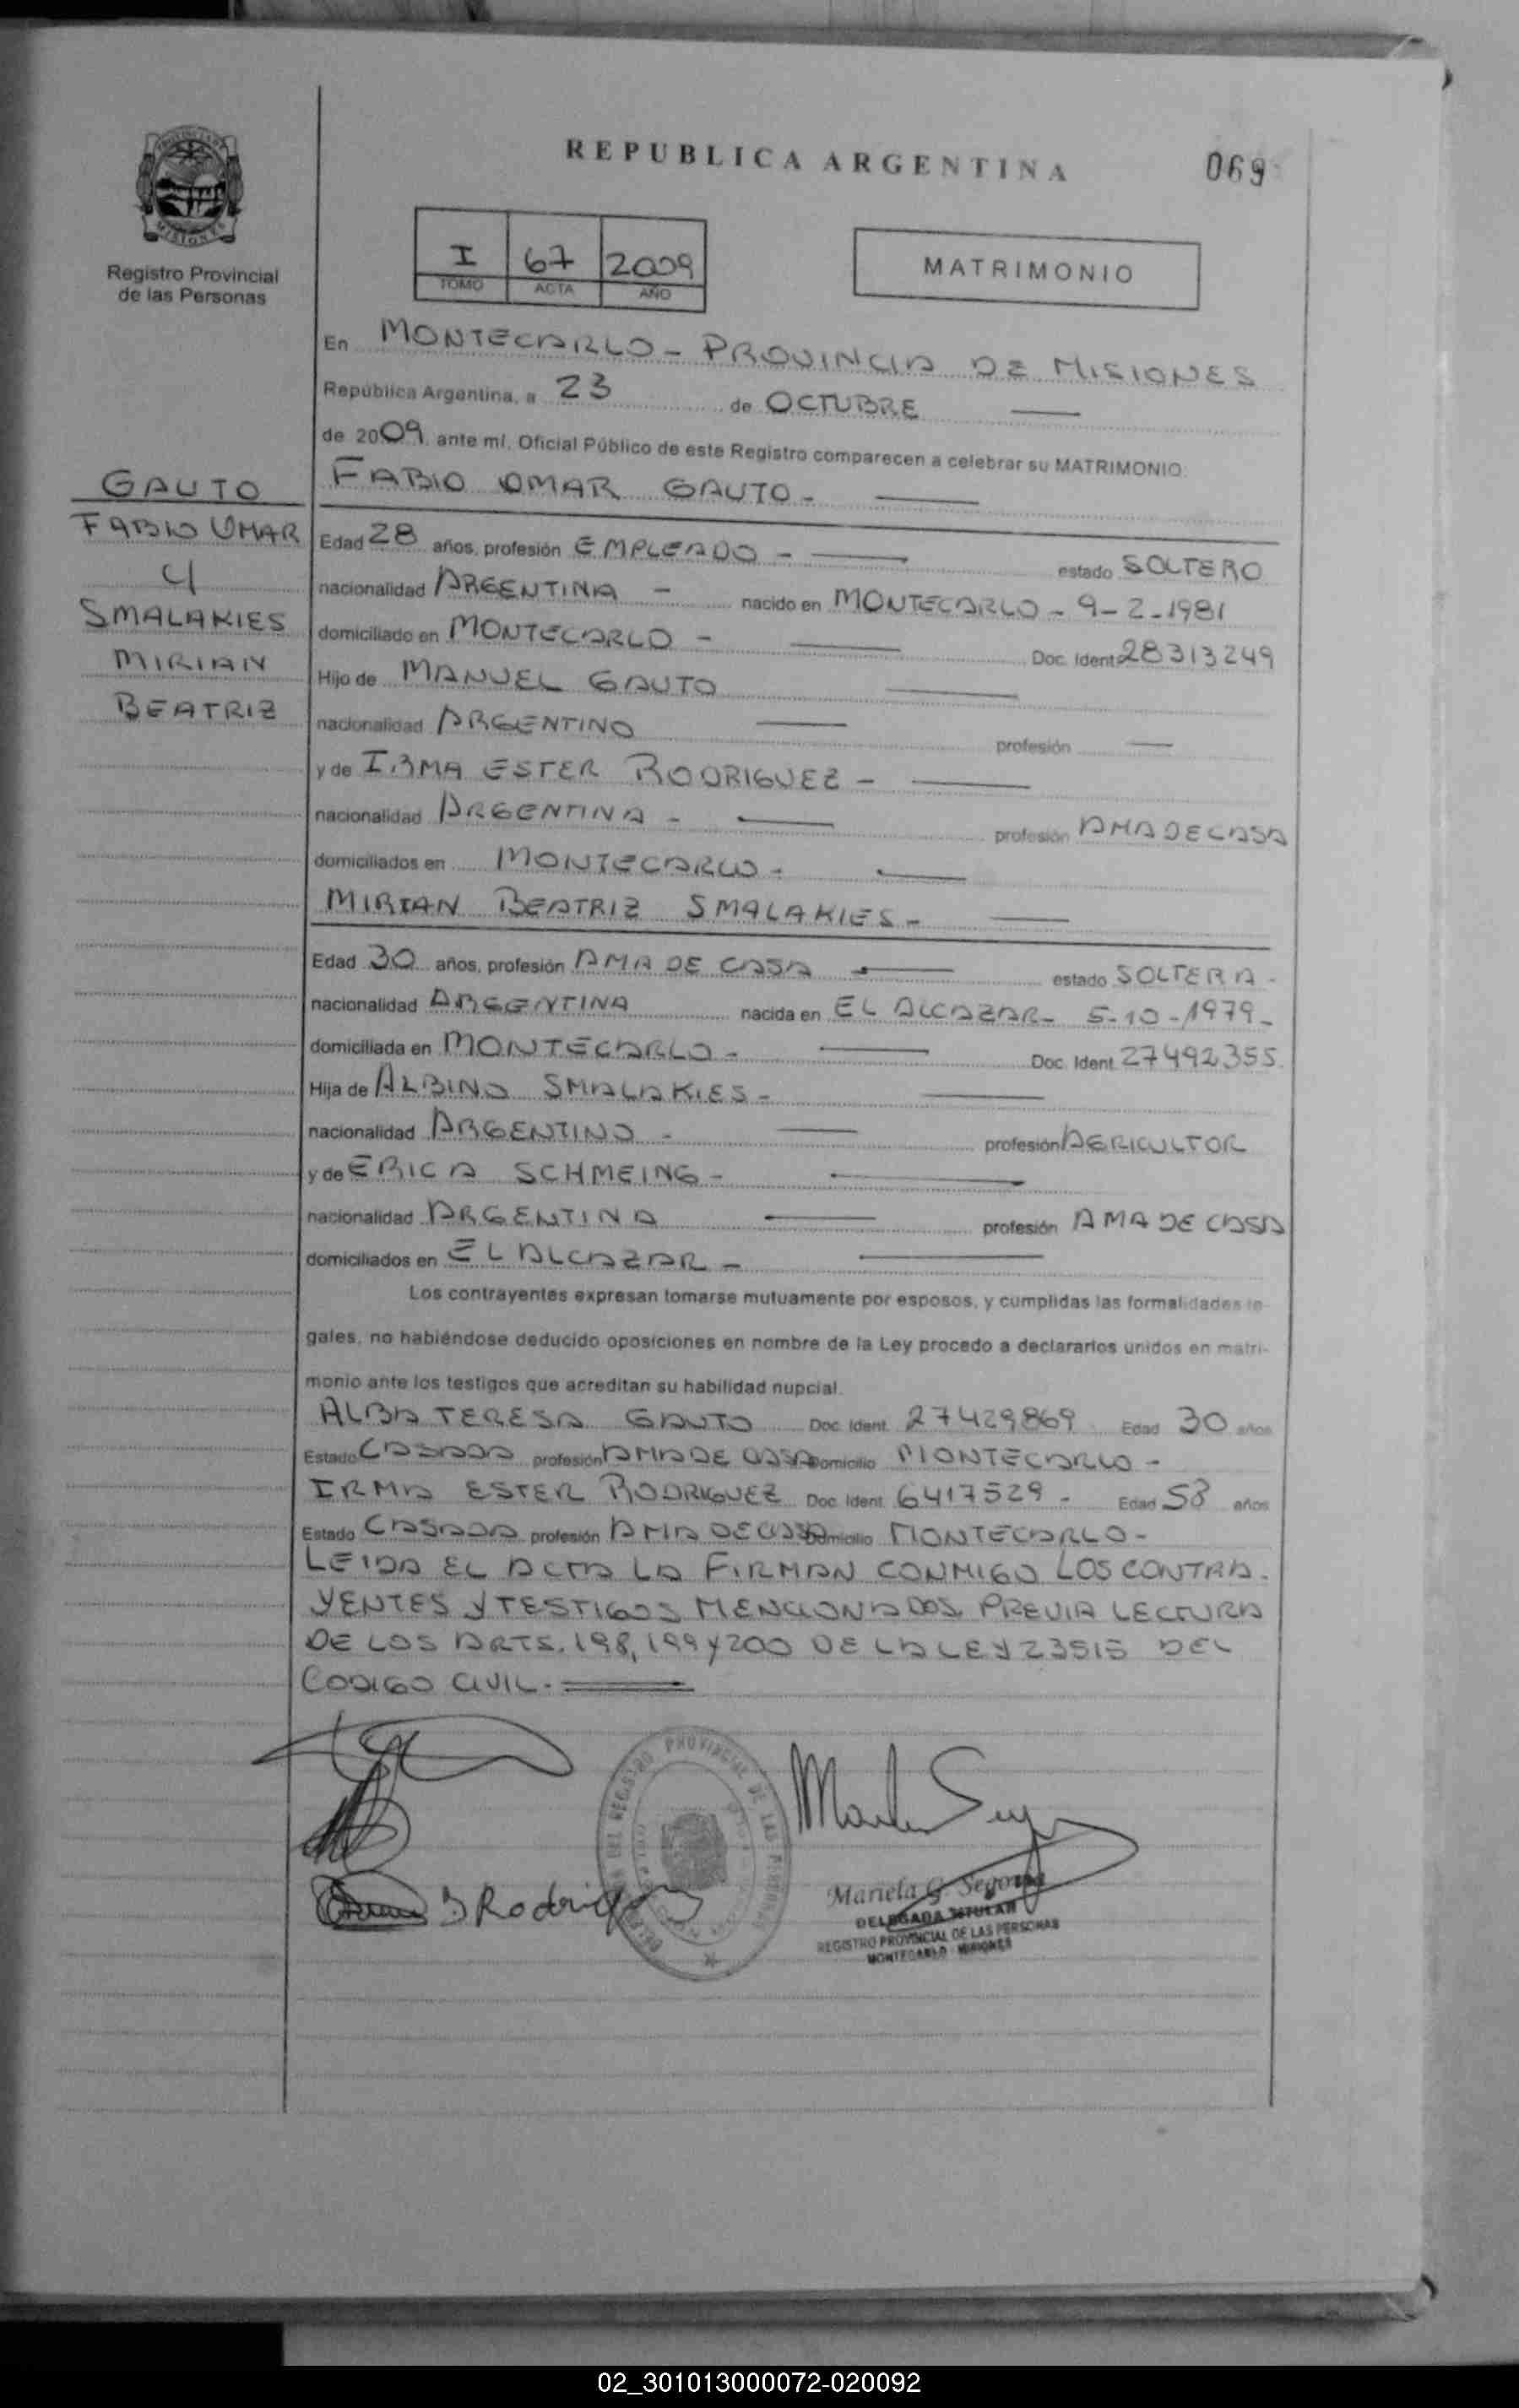 REPUBLICA ARGENTINA
069
PROVINCIA DE
MISIONES
Registro Provincial
de las Personas
I 67 2009
TOMO ACTA AÑO
MATRIMONIO
En MONTECARLO - PROVINCIA DE MISIONES
República Argentina, a 23 de OCTUBRE
de 2009 ante mí, Oficial Público de este Registro comparecen a celebrar su MATRIMONIO:
FABIO OMAR GAUTO -
GAUTO
FABIO OMAR
Y
SMALAKIES
MIRIAN
BEATRIZ
Edad 28 años, profesión EMPLEADO - estado SOLTERO
nacionalidad ARGENTINA - nacido en MONTECARLO - 9-2-1981
domiciliado en MONTECARLO - Doc. Ident. 28313249
Hijo de MANUEL GAUTO
nacionalidad ARGENTINO profesión —
y de IRMA ESTER RODRIGUEZ -
nacionalidad ARGENTINA - profesión AMA DE CASA
domiciliados en MONTECARLO -
MIRIAN BEATRIZ SMALAKIES -
Edad 30 años, profesión AMA DE CASA estado SOLTERA -
nacionalidad ARGENTINA nacida en EL ALCAZAR - 5-10-1979 -
domiciliada en MONTECARLO - Doc. Ident. 27492355
Hija de ALBINO SMALAKIES -
nacionalidad ARGENTINO - profesión AGRICULTOR
y de ERICA SCHMEING -
nacionalidad ARGENTINA profesión AMA DE CASA
domiciliados en EL ALCAZAR -
Los contrayentes expresan tomarse mutuamente por esposos, y cumplidas las formalidades le-
gales, no habiéndose deducido oposiciones en nombre de la Ley procedo a declararlos unidos en matri-
monio ante los testigos que acreditan su habilidad nupcial.
ALBA TERESA GAUTO Doc. Ident. 27429869 Edad 30 años
Estado CASADA profesión AMA DE CASA Domicilio MONTECARLO -
IRMA ESTER RODRIGUEZ Doc. Ident. 6417529 - Edad 58 años
Estado CASADA profesión AMA DE CASA Domicilio MONTECARLO -
LEIDA EL ACTA LA FIRMAN CONMIGO LOS CONTRA-
YENTES Y TESTIGOS MENCIONADOS, PREVIA LECTURA
DE LOS ARTS. 198, 199 Y 200 DE LA LEY 23515 DEL
CODIGO CIVIL.
DEL REGISTRO PROVINCIAL DE LAS PERSONAS
Rodriguez
Mariela G. Segovia
DELEGADA TITULAR
REGISTRO PROVINCIAL DE LAS PERSONAS
MONTECARLO - MISIONES
02_301013000072-020092